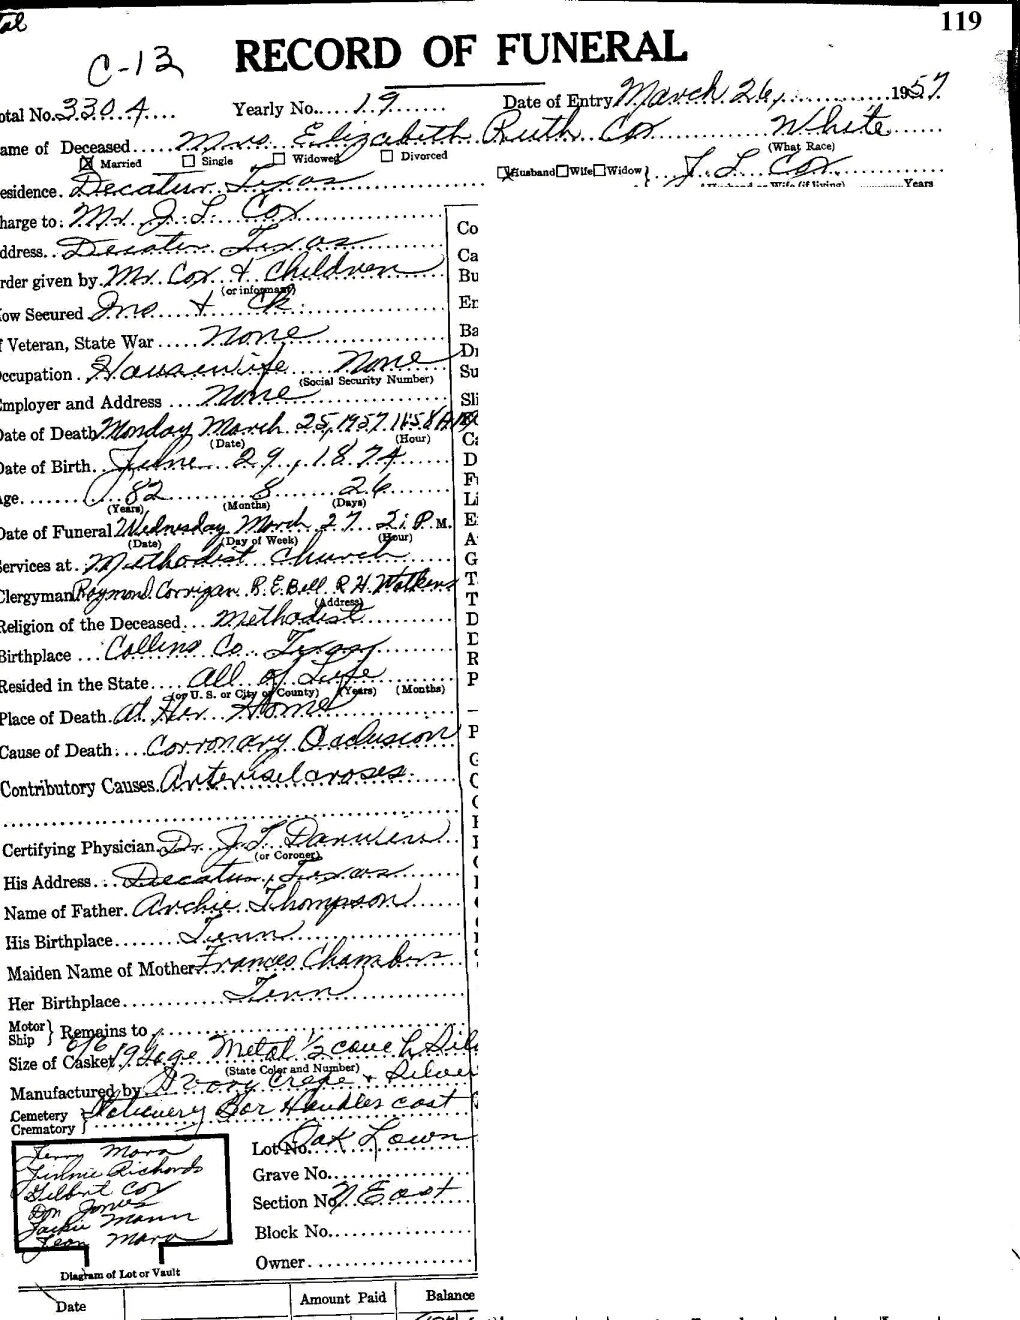 tal
119
C-13
RECORD OF FUNERAL
otal No. 3304 Yearly No. 19 Date of Entry March 26, 1957
ame of Deceased Mrs. Elizabeth Ruth Cox White
Married Single Widowed Divorced (What Race)
Husband Wife Widow } J L Cox
esidence. Decatur Texas Years
harge to: Mr. J. L. Cox
Co
ddress.. Decatur Texas
Ca
rder given by. Mr. Cox & Children
Bu
(or informant)
ow Secured Ins + Ck.
Er
f Veteran, State War None
Ba
Di
ccupation. Housewife None
Su
(Social Security Number)
mployer and Address None
Sli
Date of Death Monday March 25, 1957 11:58 A.M.
(Date) (Hour)
Ca
Date of Birth June 29, 1874
D
ge 82 8 26
F
(Years) (Months) (Days)
Li
Date of Funeral Wednesday March 27 2: P. M.
E
(Date) (Day of Week) (Hour)
A
ervices at. Methodist Church
G
T
Clergyman Raymond Corrigan R. E. Bell R H. Watkins
(Address)
T
Religion of the Deceased Methodist
D
Birthplace Collins Co. Texas
D
R
Resided in the State All of Life
P
(or U. S. or City or County) (Years) (Months)
Place of Death. At Her Home
Cause of Death: Corronary Occlusion
P
Contributory Causes. Arteriselaroses.
Certifying Physician. Dr. J. T.
(or Coroner)
His Address Decatur, Texas
Name of Father. Archie Thompson
His Birthplace Tenn
Maiden Name of Mother Frances Chambers
Her Birthplace Tenn
Motor Ship } Remains to
Size of Casket 6/6 19 Gage Metal 1/2 couch Sil
(State Color and Number)
Manufactured by Ivory Crepe + Silver
Cemetery Crematory } Stationery Bar Handles cost
Lot No. Oak Lown
Grave No.
Section No. N East
Block No.
Owner
Terry Mara
Jimmie Richards
Gilbert Cox
Don Jones
Jackie Mann
Leon Mara
Diagram of Lot or Vault
Date Amount Paid Balance